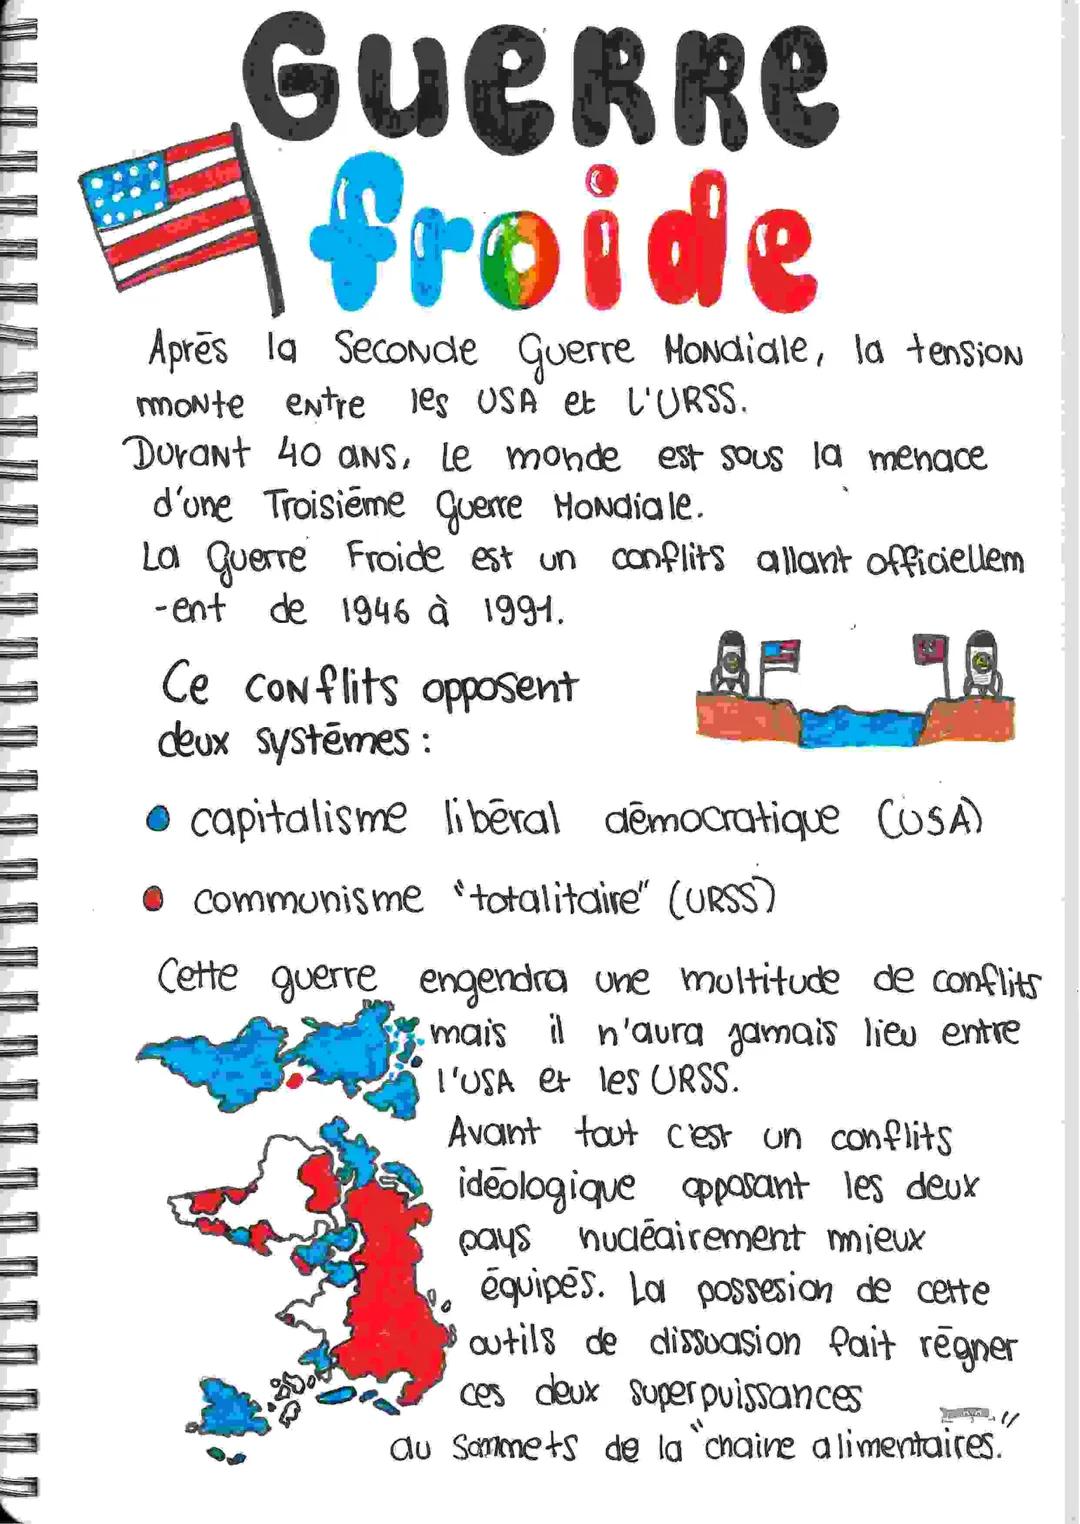 Guerre
froide
Après la Seconde Guerre Mondiale, la tension
monte entre les USA et l'URSS.
Durant 40 ans, le monde est sous la menace
d'une Troisième Guerre Mondiale.
La Guerre Froide est un conflits allant officiellem
-ent de 1946 à 1991.
Ce conflits opposent
deux systèmes :
capitalisme libéral démocratique (USA)
communisme "totalitaire" (URSS)
Cette guerre engendra une multitude de conflits
mais il n'aura jamais lieu entre
l'USA et les URSS.
Avant tout c'est un conflits
idéologique opposant les deux
pays nucléairement mieux
équipés. La possesion de cette
outils de dissuasion fait régner
ces deux superpuissances
au sommets de la "chaine alimentaires."